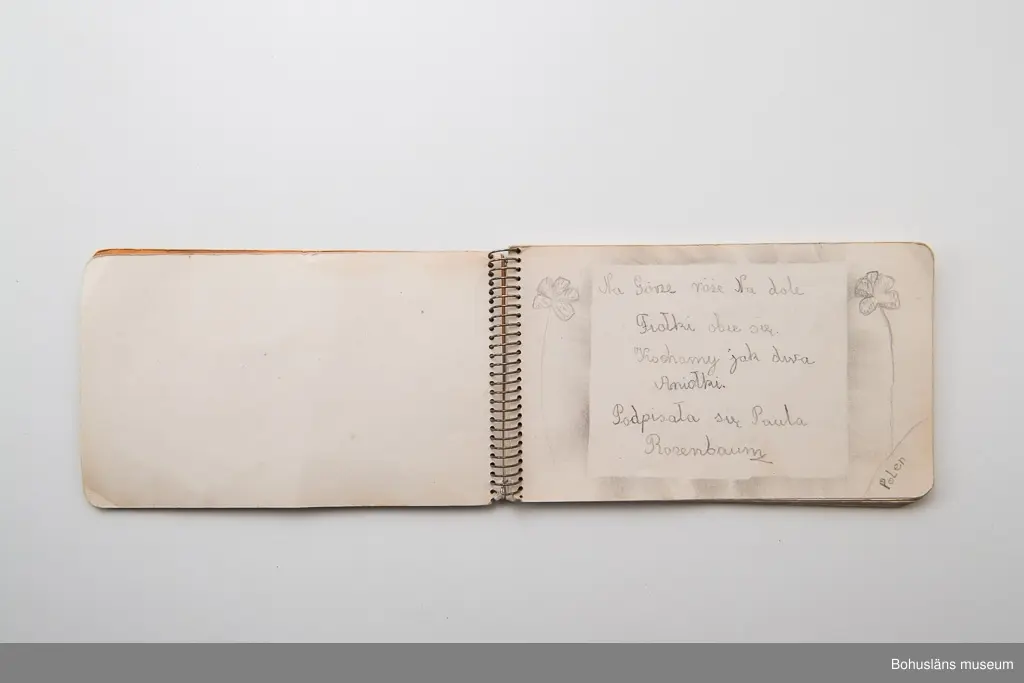 Na Górze róże Na dole
Fiołki obie się.
Kochamy jak dwa
Aniołki.
Podpisała się Paula
Rozenbaum
Polen
Bohusläns museum